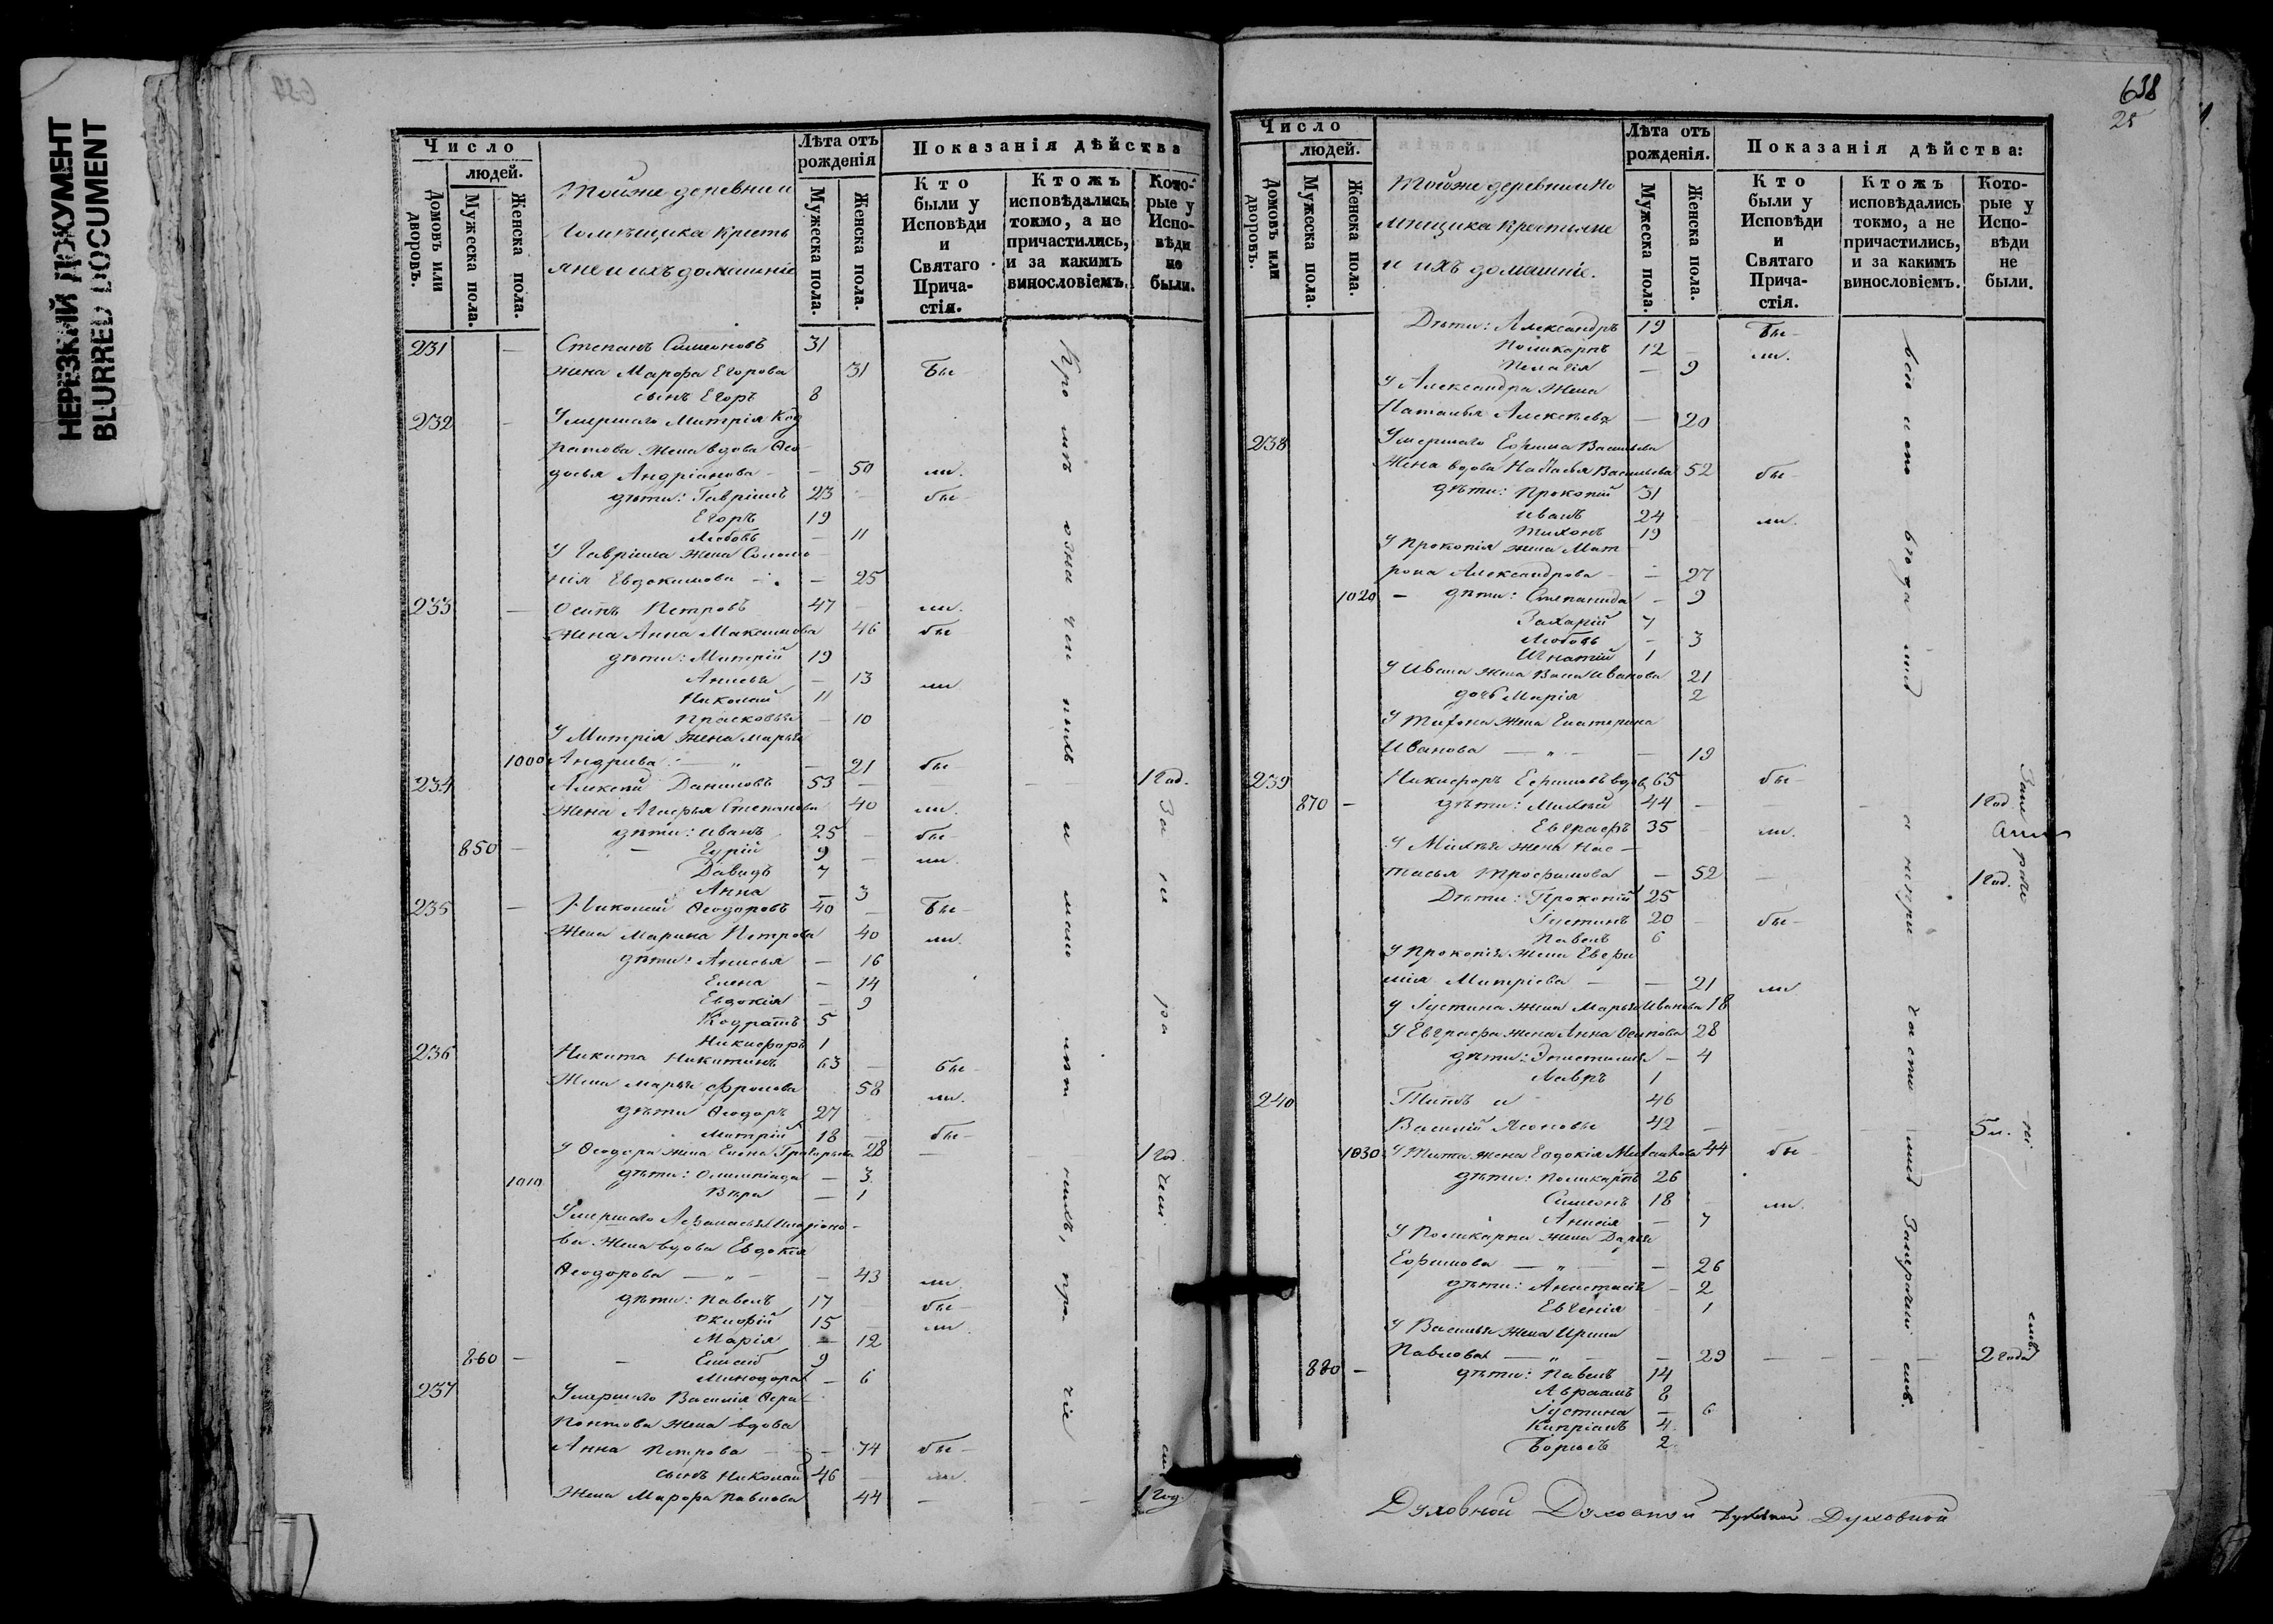 НЕРЕЗКИЙ ДОКУМЕНТ
BLURRED DOCUMENT
Число
людей.
Домовъ или дворовъ.
Мужеска пола.
Женска пола.
Тойже деревни и
помѣщика Кресть
яне и ихъ домашніе
Лѣта отъ рожденія
Мужеска пола.
Женска пола.
Показанія дѣйства
Кто были у Исповѣди и Святаго Прича-стія.
Ктожъ исповѣдались токмо, а не причастились, и за какимъ винословіемъ.
Кото-рые у Испо-вѣди не были.
231 — Степанъ Симоновъ 31
жена Марѳа Егорова 31 Бы-
сынъ Егоръ 8
232 - Умершаго Митрія Код
ратова жена вдова Ѳео-
досья Андріанова - — 50 ли.
дѣти: Гавріилъ 23 бы-
Егоръ 19
Любовь — 11
У Гавріила жена Соломо
нія Евдокимова — 25
233 — Осипъ Петровъ 47 ли.
жена Анна Максимова 46 бы
дѣти: Митрій 19
Анисья — 13 ли
Николай 11
Прасковья — 10
У Митрія жена Марья
1000 Андрива — " — 21 бы-
234 Алексѣй Даниловъ 53 — 1 год.
жена Агафья Степанова 40 ли.
дѣти: Иванъ 25 — бы-
850 — Гурій 9 — ли.
Давидъ 7
Анна — 3
235 — Николай Ѳеодоровъ 40 — Бы-
жена Марина Петрова 40 ли.
дѣти: Анисья — 16
Елена — 14
Евдокія — 9
Кодратъ 5
Никифоръ 1
236 Никита Никитинъ 63 — бы-
жена Марья Фролова 58 ли.
дѣти Ѳеодоръ 27
Митрій 18 — бы-
У Ѳеодора жена Елена Григорьева 28 — 1 год
1010 дѣти: Олимпіада — 3
Вѣра — 1
Умершаго Аѳанасья Иларіоно-
ва жена вдова Евдокія
Ѳеодорова — " — 43 ли.
дѣти: Павелъ 17 бы-
15 ли
Марія — 12
860 — Елисей 9
Минодора — 6
237 Умершаго Василія Ѳера
понтова жена вдова
Анна Петрова — 74 бы-
сынъ Николай 46 — ли.
жена Марѳа Павлова 44 — 1 год.
638
25
Число
людей.
Домовъ или дворовъ.
Мужеска пола.
Женска пола.
Тойже деревни и по
мѣщика Крестьяне
и ихъ домашніе.
Лѣта отъ рожденія.
Мужеска пола.
Женска пола.
Показанія дѣйства:
Кто были у Исповѣди и Святаго Прича-стія.
Ктожъ исповѣдались токмо, а не причастились, и за какимъ винословіемъ.
Кото-рые у Испо-вѣди не были.
Дѣти: Александръ 19 Бы-
Поликарпъ 12 - ли.
Пелагія — 9
У Александра жена
Наталья Алексѣева — 20
238 Умершаго Ефима Васильева
жена вдова Наталья Васильева 52 бы-
дѣти: Прокопій 31
Иванъ 24 ли.
Тихонъ 19
У Прокопія жена Мат
рона Александрова - — 27
1020 — дѣти: Степанида — 9
Захарій 7
Любовь — 3
Игнатій 1
У Ивана жена Васа Иванова 21
дочь Марія 2
У Тихона жена Екатерина
Иванова — " — 19
239 Никифоръ Ефимовъ вдов 65 бы-
870 — дѣти: Михей 44 — 1 год
Евграфъ 35 ли.
У Михея жена Нас —
тасья Трофимова — 52 — 1 год.
Дѣти: Прокопій 25
Іустинъ 20 - бы-
Павелъ 6
У Прокопія жена Евфи
мія Митріева — 21 ли
У Іустина жена Марья Иванова 18
У Евграфа жена Анна Осипова 28
дѣти: — 4
Лавръ 1
240 Титъ и 46
Василій Леоновы 42 — 5 л.
1030 У Тита жена Евдокія Михайлова 44 бы
дѣти: Поликарпъ 26
Симеонъ 18 ли.
Анисія — 7
У Поликарпа жена Дарья
Ефимова — " — 26
дѣти: Анастасія — 2
Евгенія 1
У Василья жена Ирина
Павлова — " — 29 — 2 года
880 — дѣти: Павелъ 14
Авраамъ 8
Іустина — 6
Кипріанъ 4
Борисъ 2
Духовной Духовной Духовной Духовной